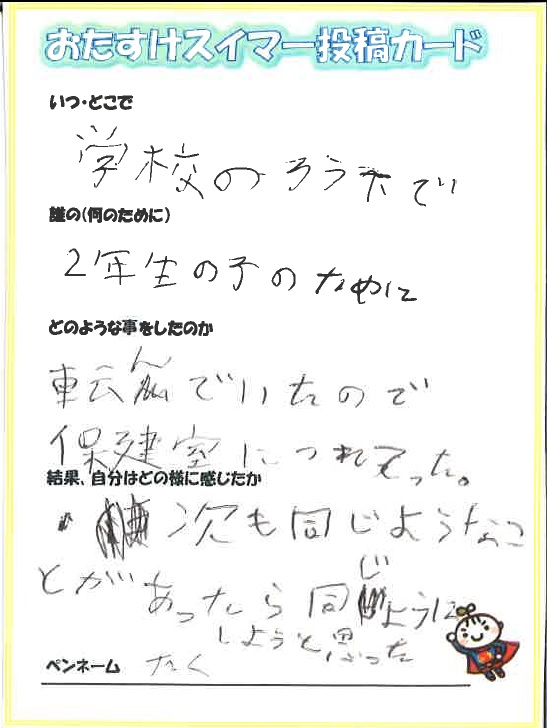 おたすけスイマー投稿カード
いつ・どこで
学校のろうかで
誰の(何のために)
2年生の子のために
どのような事をしたのか
転んでいたので
保健室につれてった。
結果、自分はどの様に感じたか
次も同じようなこ
とがあったら同じように
しようと思った
ペンネーム たく